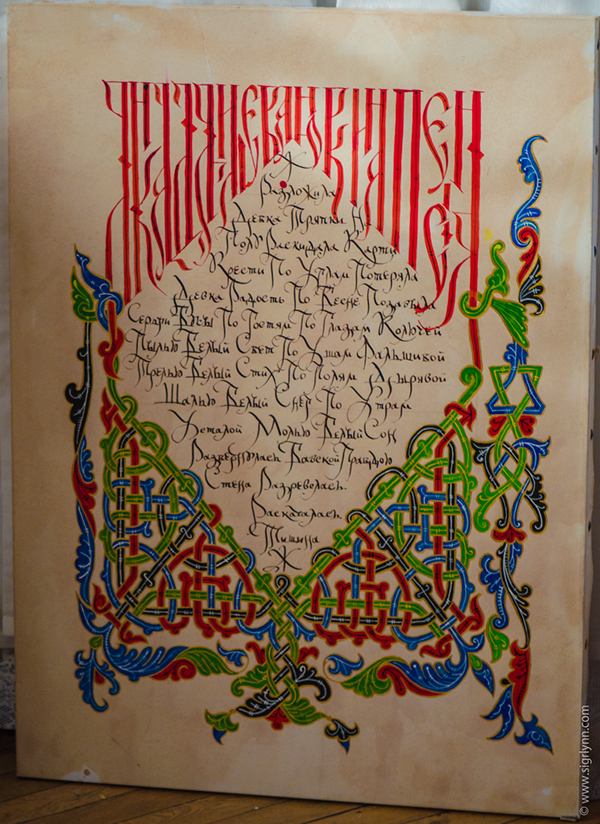 Разложила
Девка Тряпки На
Полу Раскидала Карты
Крести По Углам Потеряла
Девка Радость По Весне Позабыла
Серьги Бусы По Гостям По Глазам Колючей
Пылью Белый Свет По Ушам Фальшивой
Трелью Белый Стих По Полям Дырявой
Шалью Белый Снег По Утрам
Усталой Молью Белый Сон
Развернулась Бабской Правдою
Стена Разревелась
Раскаталась
Тишина
Ж
© www.sigrlynn.com